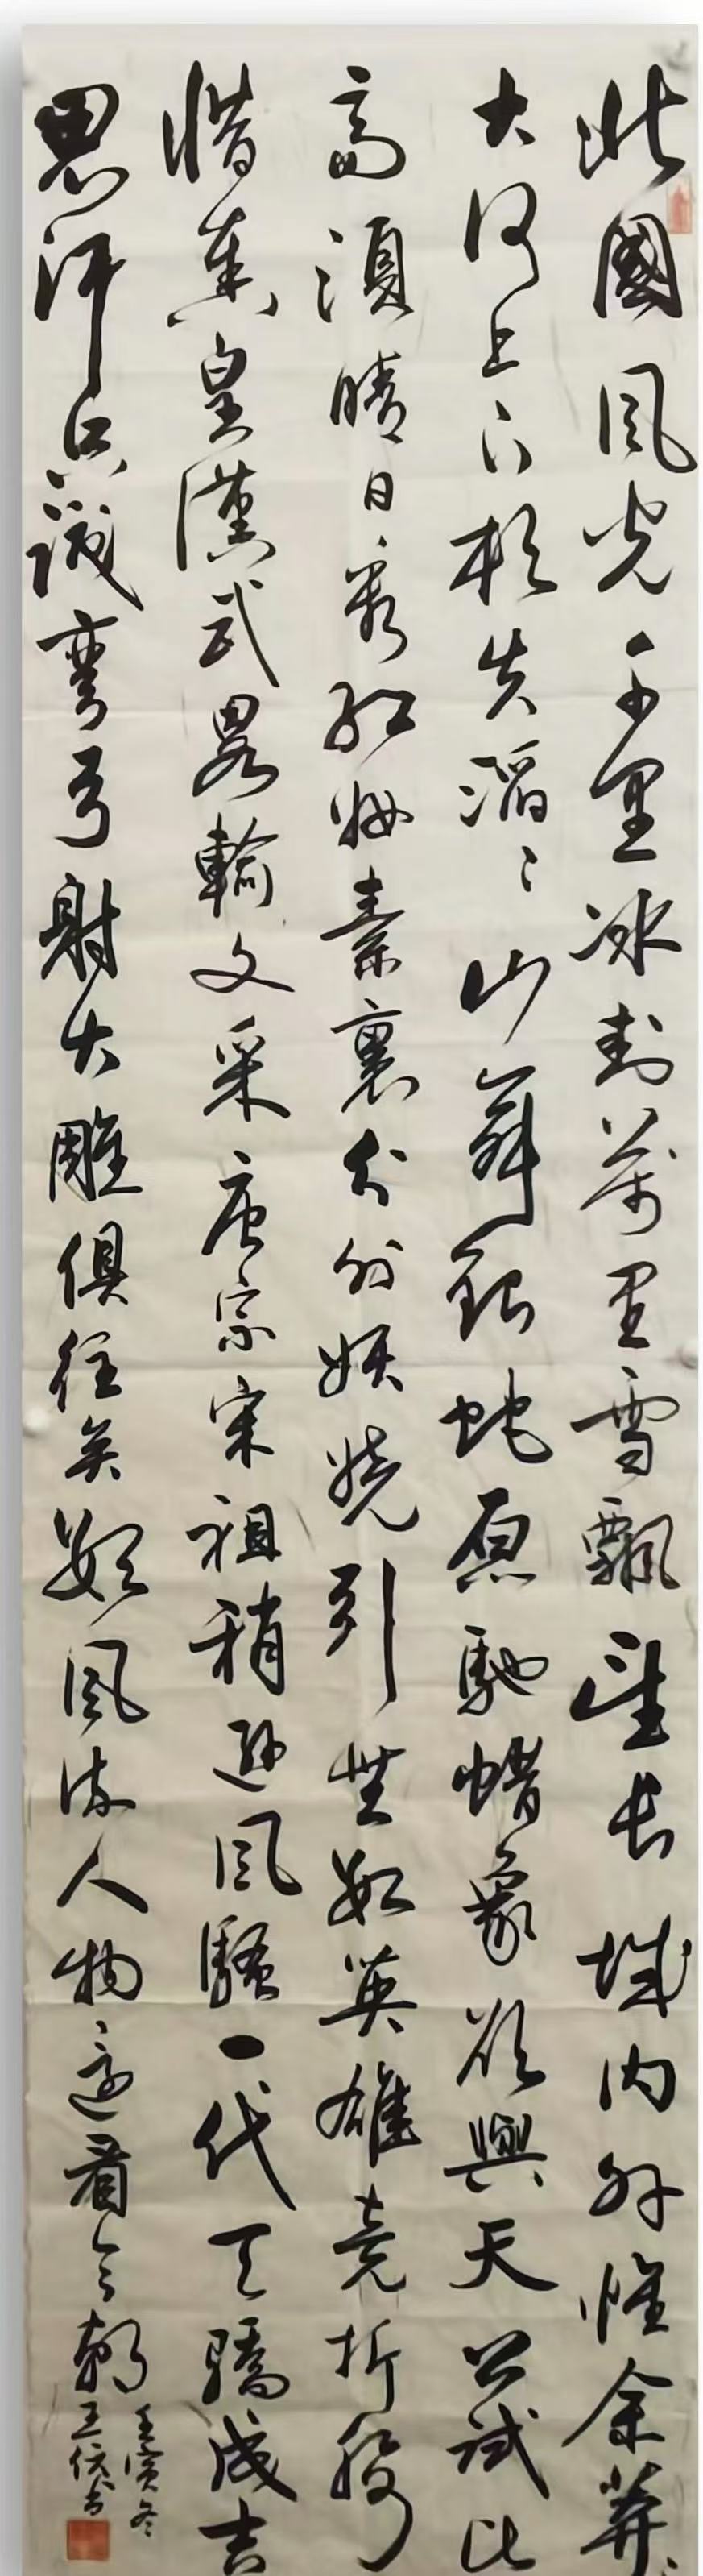 北國風光千里冰封萬里雪飄望長城内外惟余莽〻
大河上下頓失滔〻山舞銀蛇原馳蜡象欲與天公試比
高須晴日看紅妝素裹分外妖嬈引無數英雄競折腰
惜秦皇漢武畧輸文采唐宗宋祖稍遜風騷一代天驕成吉
思汗只識彎弓射大雕俱往矣數風流人物還看今朝
壬寅冬